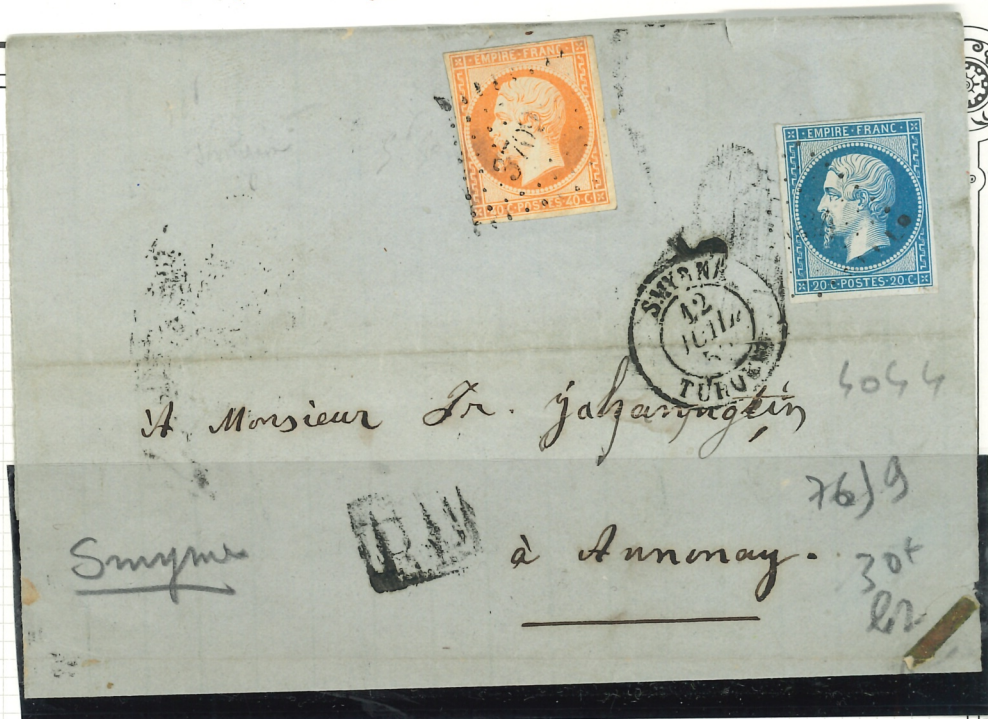 EMPIRE · FRANC ·
3709
40 C · POSTES · 40 C
EMPIRE · FRANC ·
20 C · POSTES · 20 C
SMYRNE
12
JUIL
TURQUIE
4044
À Monsieur Fr.
7619
Smyrne
à Annonay.